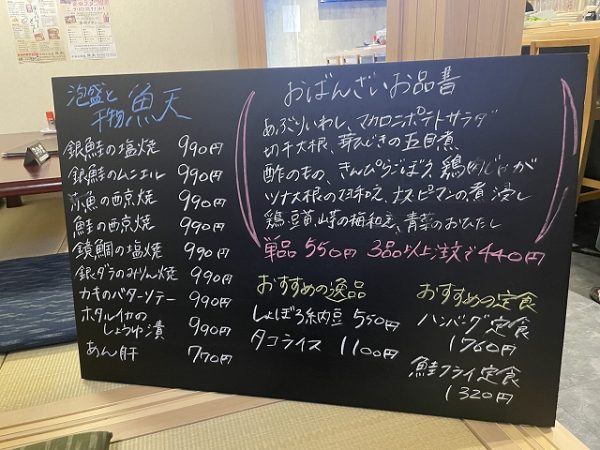 泡盛と
干物 魚天
銀鮭の塩焼 990円
銀鮭のムニエル 990円
赤魚の西京焼 990円
鮭の西京焼 990円
鏡鯛の塩焼 990円
銀ダラのみりん焼 990円
カキのバターソテー 990円
ホタルイカの
しょうゆ漬 990円
あん肝 770円
おばんざいお品書
あぶりいわし、マカロニポテトサラダ
切干大根、芽ひじきの五目煮
酢のもの、きんぴらごぼう、鶏肉じゃが
ツナ大根のゴマ和え、ナスピーマンの煮浸し
鶏、豆苗の梅和え、青菜のおひたし
単品 550円 3品以上注文で440円
おすすめの逸品
しょぼろ納豆 550円
タコライス 1100円
おすすめの定食
ハンバーグ定食
1760円
鮭フライ定食
1320円